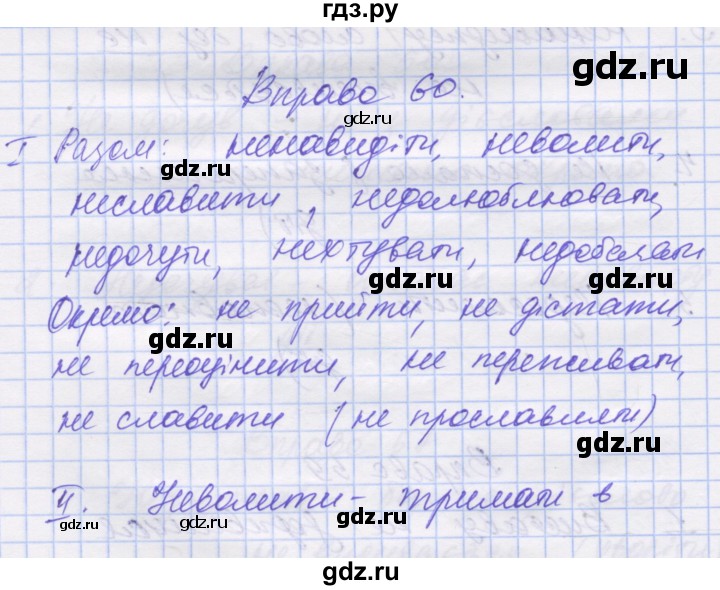 гдз.ру
gdz.ru
Вправа 60.
gdz.ru
I Разом: ненавидіти, неволити,
gdz.ru
неславити, недолюблювати,
gdz.ru
недочути, нехтувати, недобачати
gdz.ru gdz.ru
Окремо: не прийти, не дістати,
gdz.ru
не переоцінити, не переживати,
gdz.ru
не славити (не прославляти)
gdz.ru
II. Неволити – тримати в
gdz.ru gdz.ru
gdz.ru
gdz.ru